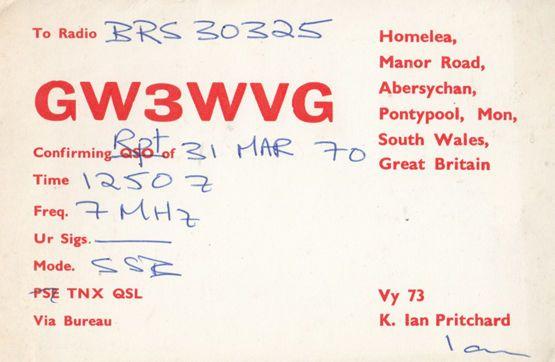 To Radio BRS 30325
GW3WVG
Confirming QSO Rpt of 31 MAR 70
Time 1250 Z
Freq. 7 MHz
Ur Sigs.
Mode. SSB
PSE TNX QSL
Via Bureau
Homelea,
Manor Road,
Abersychan,
Pontypool, Mon,
South Wales,
Great Britain
Vy 73
K. Ian Pritchard
Ian